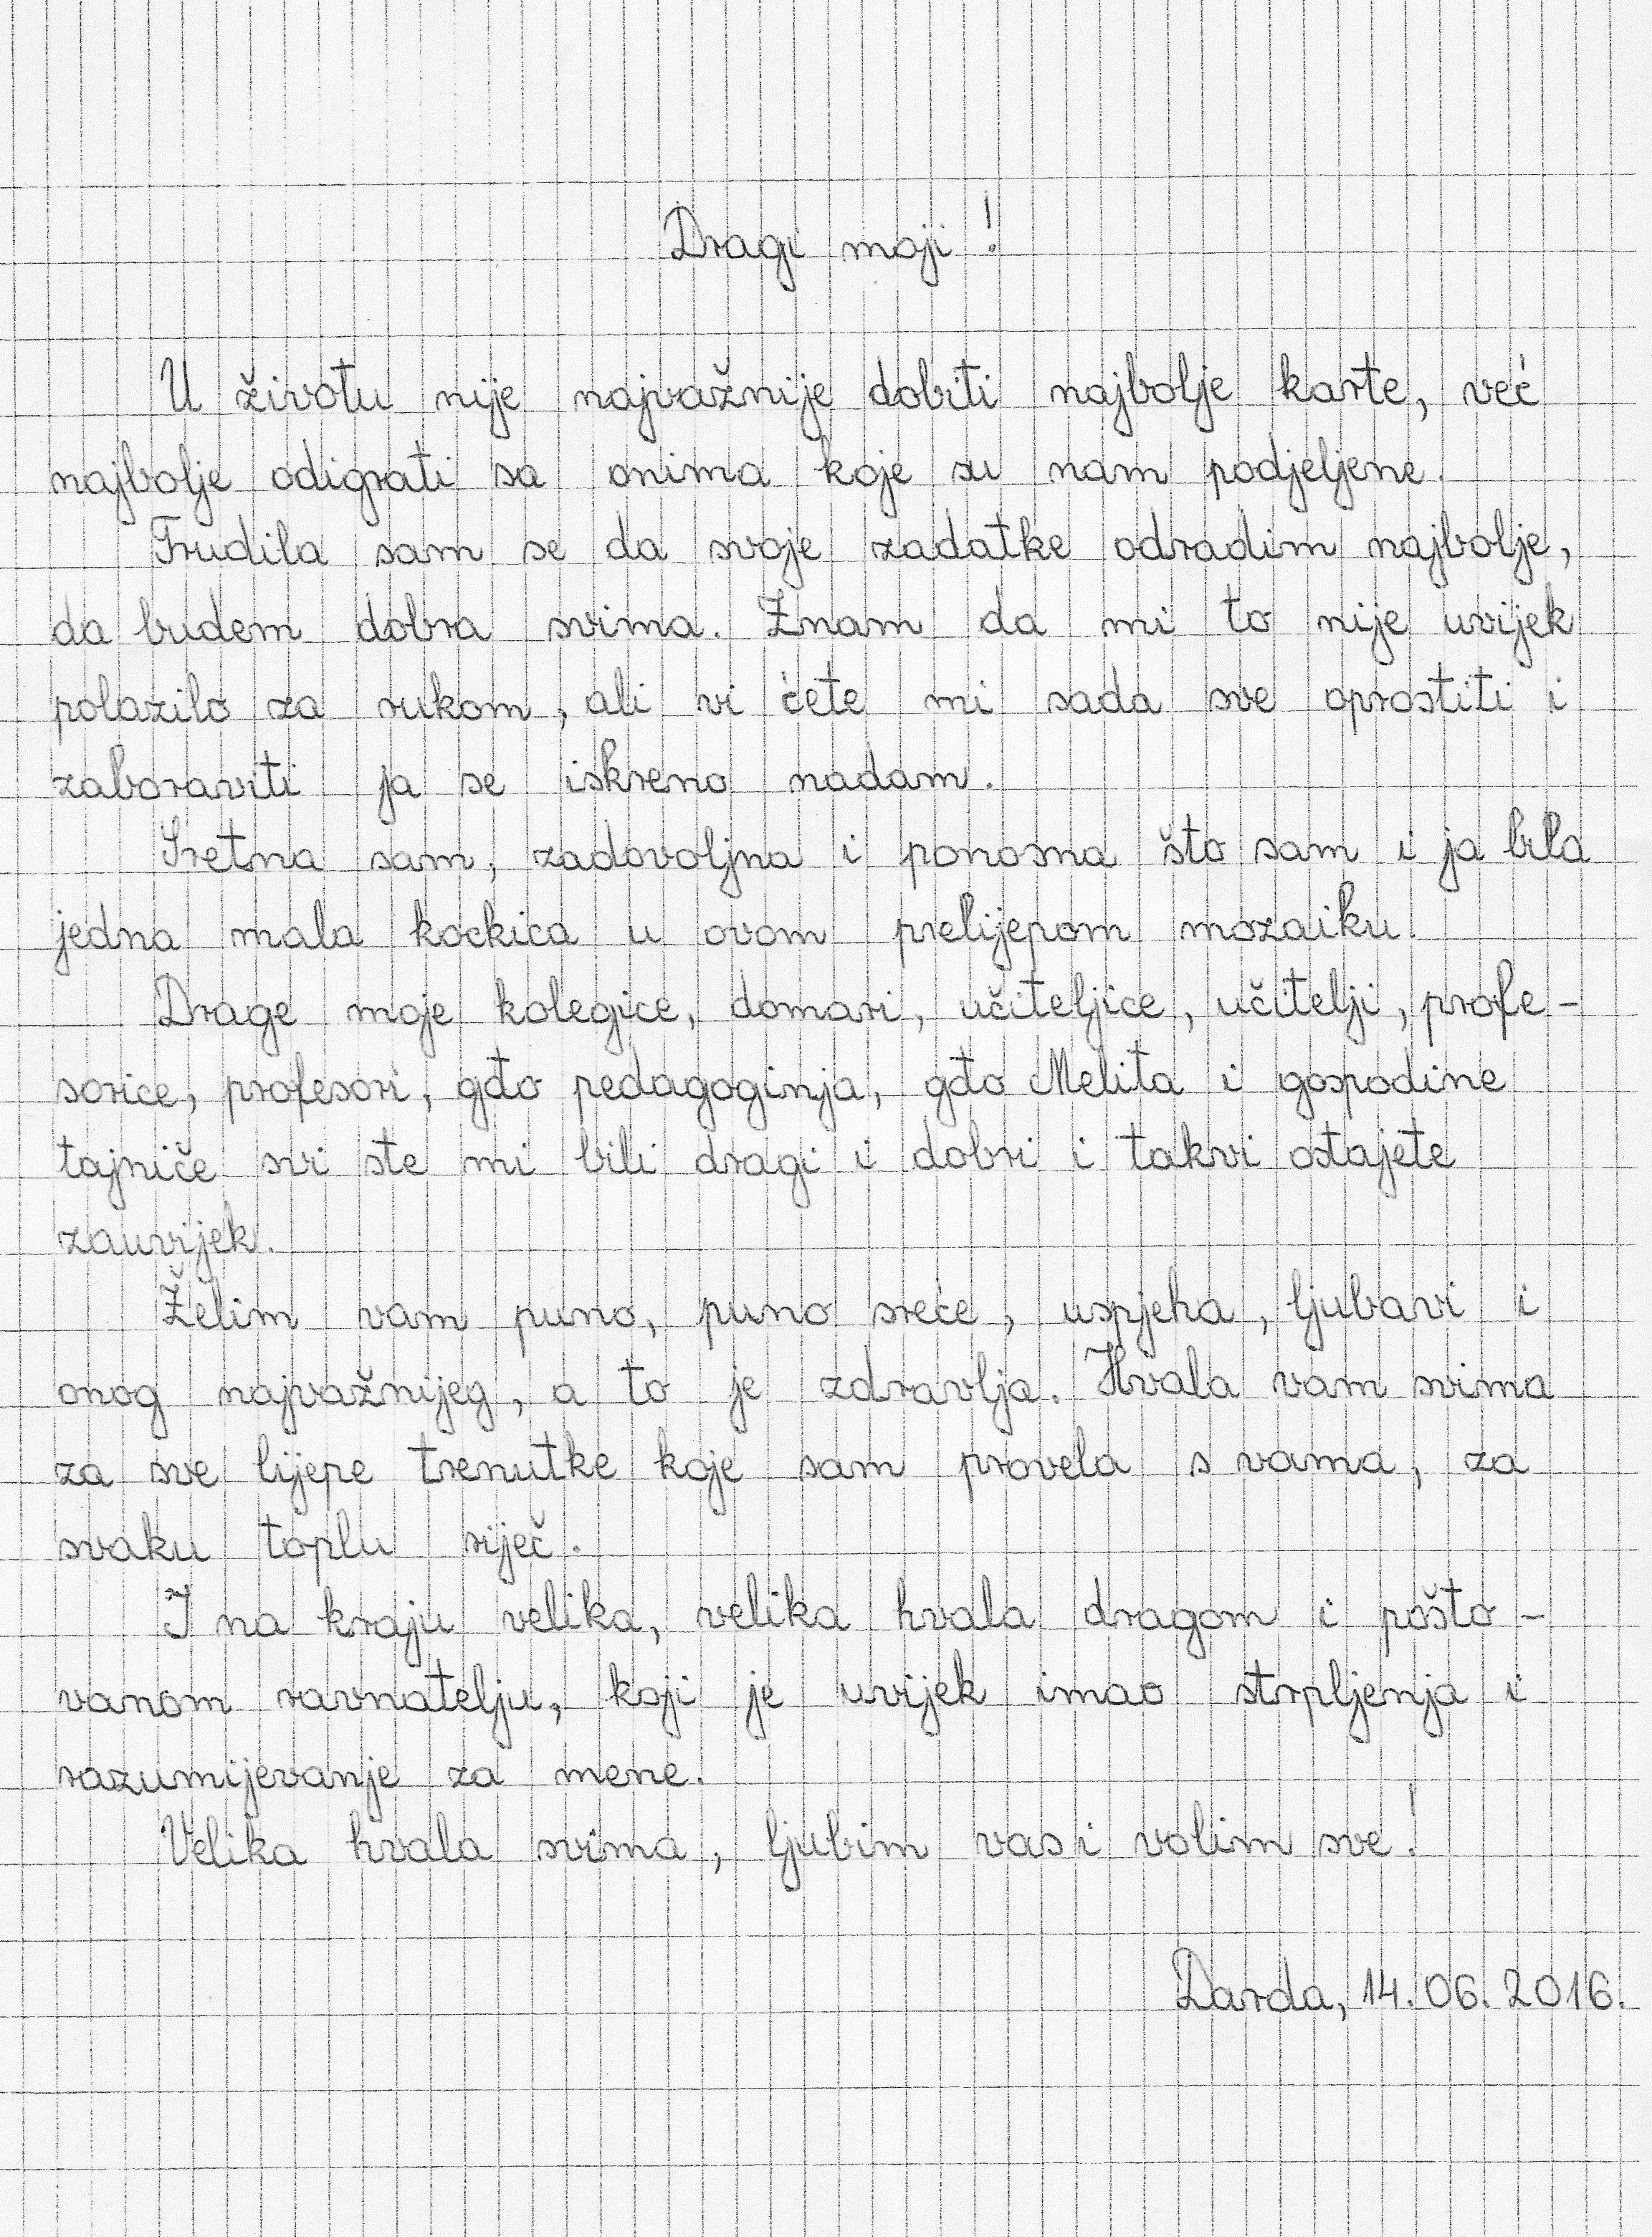 Dragi moji!
U životu nije najvažnije dobiti najbolje karte, već
najbolje odigrati sa onima koje su nam podjeljene.
Trudila sam se da svoje zadatke odradim najbolje,
da budem dobra svima. Znam da mi to nije uvijek
polazilo za rukom, ali vi ćete mi sada sve oprostiti i
zaboraviti ja se iskreno nadam.
Sretna sam, zadovoljna i ponosna što sam i ja bila
jedna mala kockica u ovom prelijepom mozaiku.
Drage moje kolegice, domari, učiteljice, učitelji, profe-
sorice, profesori, gđo pedagoginja, gđo Melita i gospodine
tajniče svi ste mi bili dragi i dobri i takvi ostajete
zauvijek.
Želim vam puno, puno sreće, uspjeha, ljubavi i
onog najvažnijeg, a to je zdravlja. Hvala vam svima
za sve lijepe trenutke koje sam provela s vama, za
svaku toplu riječ.
I na kraju velika, velika hvala dragom i pošto-
vanom ravnatelju, koji je uvijek imao strpljenja i
razumijevanje za mene.
Velika hvala svima, ljubim vas i volim sve!
Darda, 14.06.2016.